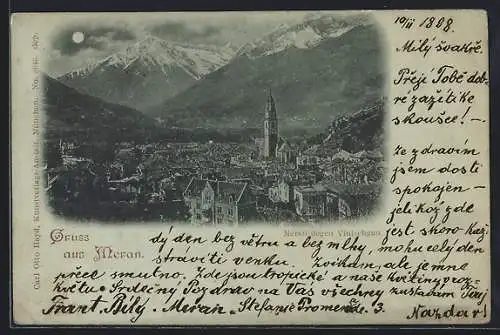 10/II 1898.
Milý švakře.
Přeji Tobě dob-
ré zažití ke
zkoušce! —
Ze zdravím
jsem dosti
spokojen —
jelikož zde
jest skoro kaž-
dý den bez větru a bez mlhy, mohu celý den
stráviti venku. Zvikám, ale jemne
přece smutno. Zde jsou tropické a naše květiny v roz-
květu — Srdečný Pozdrav na Vás všechny zůstávám Tvůj
Frant. Bílý. Meran „Stefanie Promenáde" 3. Nazdar!
Gruss
aus Meran.
Meran gegen Vintschgau.
Carl Otto Hayd, Kunstverlags-Anstalt, München. No.